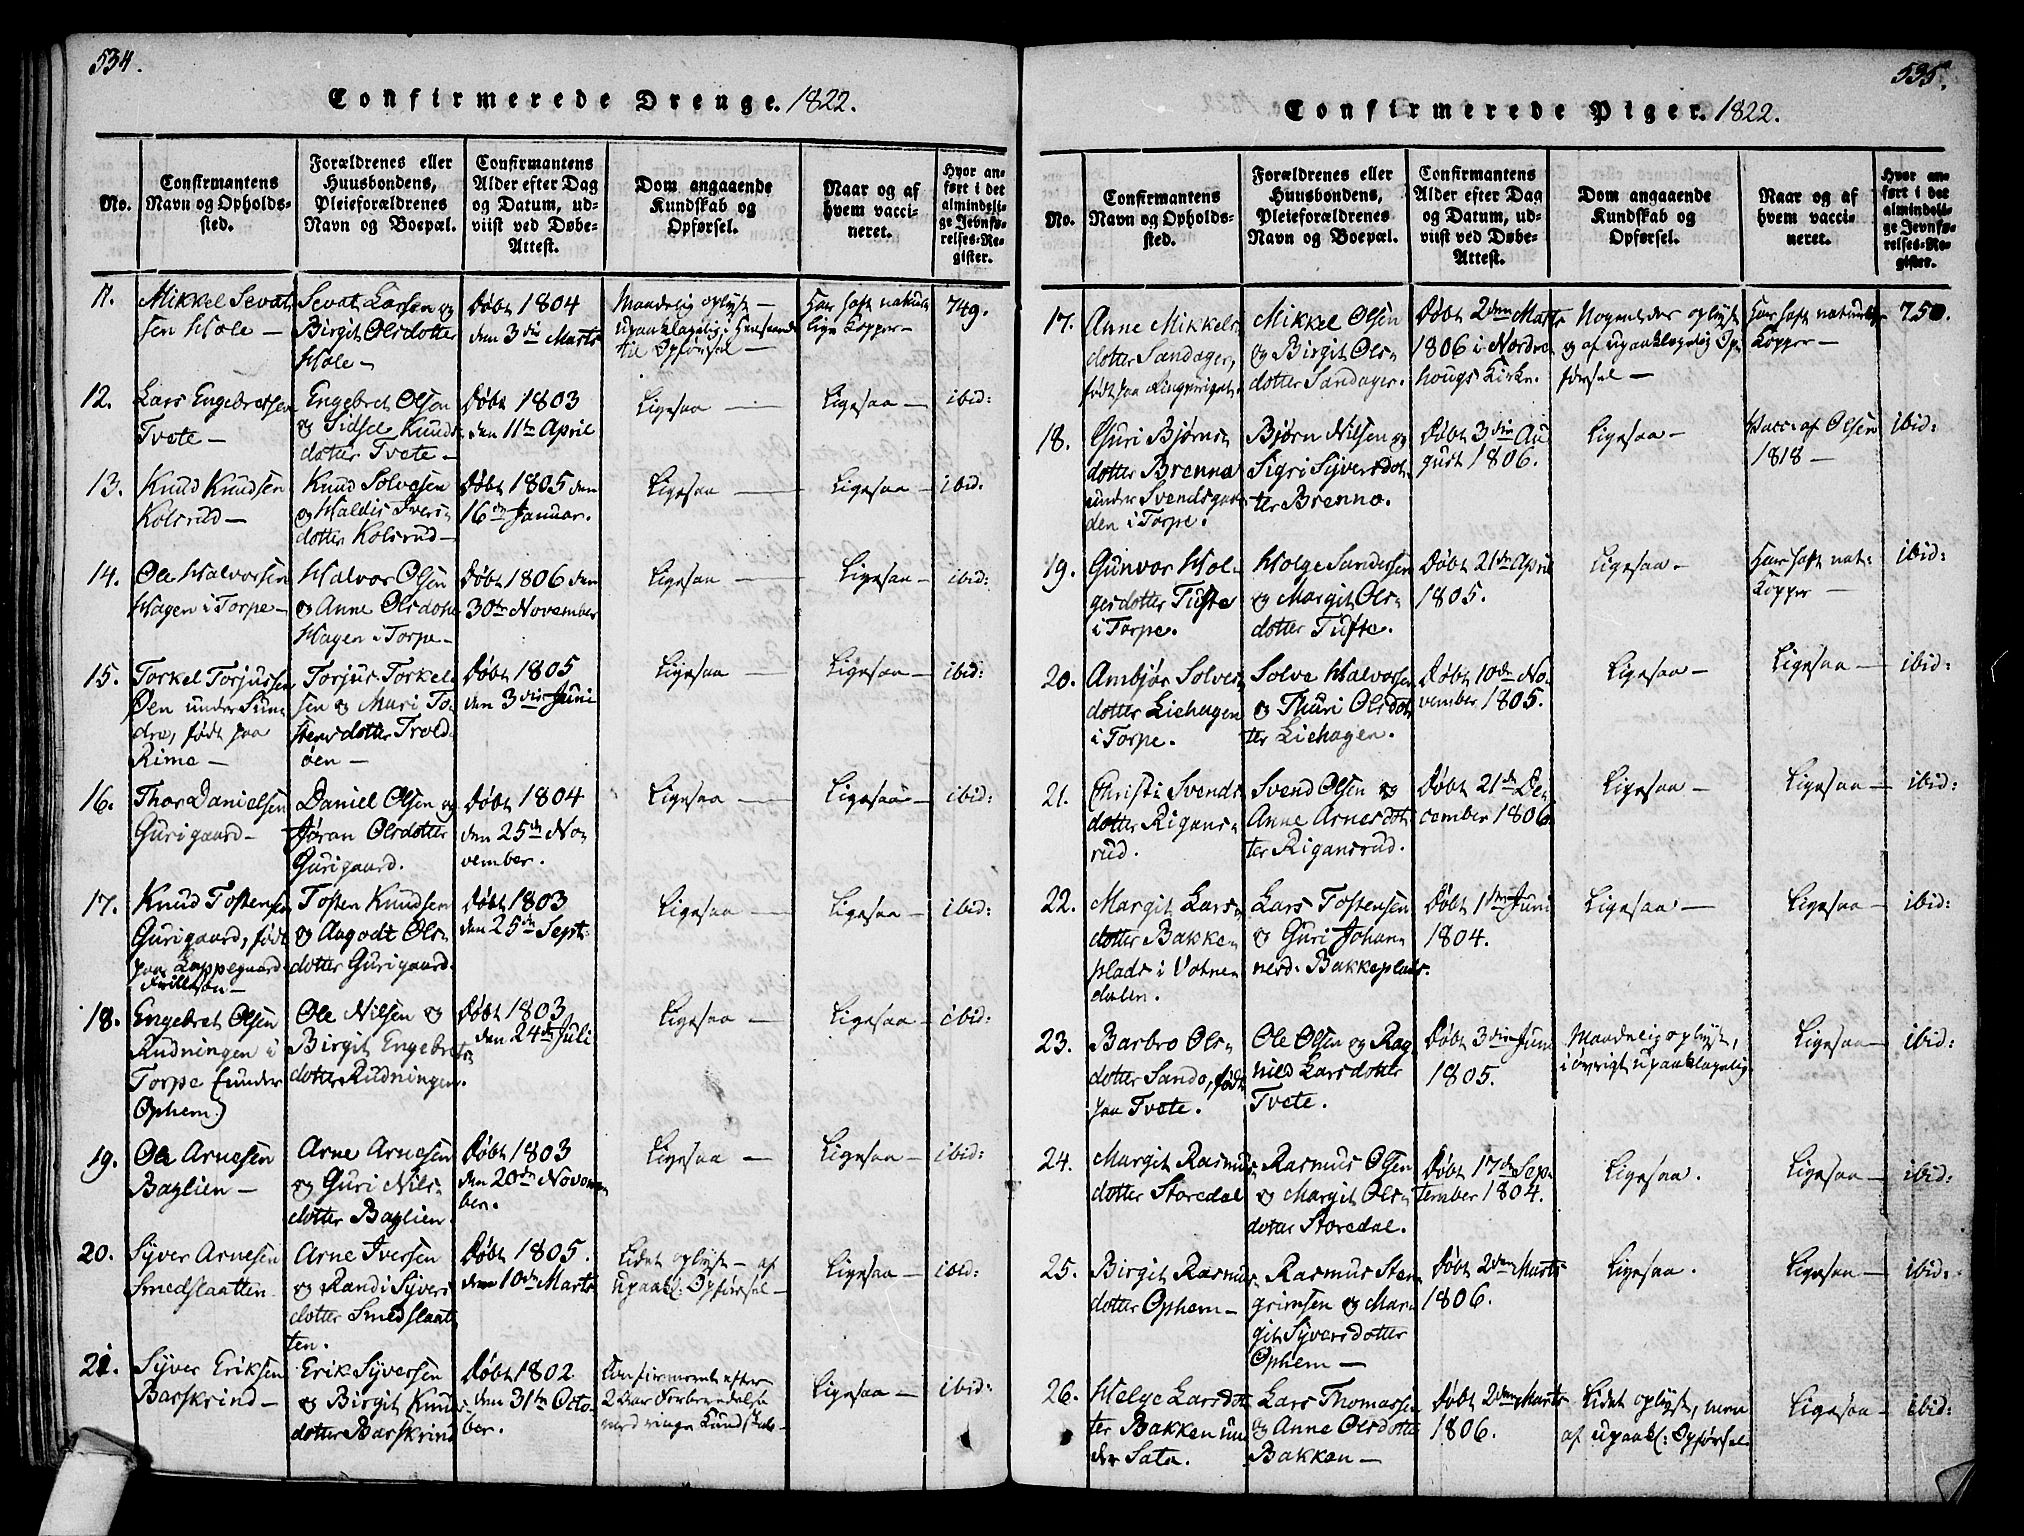 534.
Confirmerede Drenge. 1822.
No.
Confirmantens
Navn og Opholds-
sted.
Forældrenes eller
Huusbondens,
Pleieforældrenes
Navn og Boepæl.
Confirmantens
Alder efter Dag
og Datum, ud-
viist ved Døbe-
Attest.
Dom angaaende
Kundskab og
Opførsel.
Naar og af
hvem vacci-
neret.
Hvor an-
ført i det
almindeli-
ge Jevnfø-
relses-Re-
gister.
11.
Mikkel Sevat
sen Hole —
Sevat Larsen og
Birgit Olsdotter
Hole —
Døbt 1804
den 3die Marts
Maadelig oplyst —
upaaklagelig i Henseende
til Opførsel —
Har haft natur
lige Kopper —
749.
12.
Lars Engebretsen
Tvete —
Engebret Olsen
og Sidsel Knuds
dotter Tvete —
Døbt 1803
den 11te April
Ligesaa —
Ligesaa —
ibid:
13.
Knud Knudsen
Kolsrud —
Knud Solvesen
og Haldis Ivers-
dotter Kolsrud —
Døbt 1805 den
16de Januar.
Ligesaa —
Ligesaa —
ibid.
14.
Ole Halvorsen
Hagen i Torpe —
Halvor Olsen
og Anne Olsdotter
Hagen i Torpe —
Døbt 1806 den
30te November
Ligesaa —
Ligesaa —
ibid:
15.
Torkel Torjussen
Øen under Sun
dre, født paa
Rime —
Torjus Torkel
sen og Mari To-
stensdotter Trold-
øen —
Døbt 1805
den 3die Juni
Ligesaa —
Ligesaa —
ibid:
16.
Thor Danielsen
Gurigaard —
Daniel Olsen og
Jøran Olsdotter
Gurigaard.
Døbt 1804
den 25de No-
vember.
Ligesaa —
Ligesaa —
ibid:
17.
Knud Tostensen
Gurigaard, født
paa Lappegaard
Tosten Knudsen
og Aagodt Ols-
dotter Gurigaard.
Døbt 1803
den 25de Sept:
Ligesaa —
Ligesaa —
ibid:
18.
Engebret Olsen
Rudningen i
Torpe (under
Ophem)
Ole Nilsen og
Birgit Engebrets-
dotter Rudningen.
Døbt 1803
den 24de Juli
Ligesaa —
Ligesaa —
ibid:
19.
Ole Arnesen
Baglien —
Arne Arnesen
og Guri Nils-
dotter Baglien.
Døbt 1803
den 20de Novem-
ber.
Ligesaa —
Ligesaa —
ibid:
20.
Syver Arnesen
Smedslaatten
Arne Iversen
og Randi Syvers
dotter Smedslaat
ten.
Døbt 1805.
den 10de Marts
Lidet oplyst — af
upaakl: Opførsel —
Ligesaa —
ibid:
21.
Syver Eriksen
Barskrind —
Erik Syversen
og Birgit Knuds-
dotter Barskrind
Døbt 1802.
den 31te Octo-
ber.
Confirmeret efter
2 Aar Forberedelse
med ringe Kundskab —
Ligesaa —
ibid:
535.
Confirmerede Piger. 1822.
No.
Confirmantens
Navn og Opholds-
sted.
Forældrenes eller
Huusbondens,
Pleieforældrenes
Navn og Boepæl.
Confirmantens
Alder efter Dag
og Datum, ud-
viist ved Døbe-
Attest.
Dom angaaende
Kundskab og
Opførsel.
Naar og af
hvem vacci-
neret.
Hvor an-
ført i det
almindeli-
ge Jevnfø-
relses-Re-
gister.
17.
Anne Mikkels-
dotter Sandager,
født paa Ringeriget
Mikkel Olsen
og Birgit Ols-
dotter Sandager.
Døbt 2den Marts
1806 i Nordre-
hougs Kirke.
Nogenledes oplyst
og af upaaklagelig Op-
førsel —
Har haft naturlige
Kopper —
750.
18.
Guri Bjørns-
dotter Brenna
under Svendsgaar-
den i Torpe.
Bjørn Nilsen og
Sigri Syversdot-
ter Brenno.
Døbt 3die Au
gust 1806.
Ligesaa —
Vacc: af Olsen
1818 —
ibid:
19.
Gunvor Hol-
gesdotter Tufte
i Torpe.
Holge Sandersen
og Margit Ols-
dotter Tufte.
Døbt 21de April
1805.
Ligesaa —
Har haft nat:
Kopper —
ibid:
20.
Ambjør Solves-
dotter Liehagen
i Torpe.
Solve Halvorsen
og Thuri Olsdot-
ter Liehagen.
Døbt 10de No-
vember 1805.
Ligesaa —
Ligesaa —
ibid:
21.
Christi Svends-
dotter Rigans-
rud.
Svend Olsen og
Anne Arnesdot-
ter Rigansrud.
Døbt 21de De-
cember 1806.
Ligesaa —
Ligesaa —
ibid:
22.
Margit Lars-
dotter Bakke-
plads i Votne-
dalen.
Lars Tostensen
og Guri Johan-
nesd: Bakkeplads.
Døbt 1ste Juni
1804.
Ligesaa —
Ligesaa —
ibid:
23.
Barbro Ols-
dotter Sando, født
paa Tvete.
Ole Olsen og Rag-
nild Larsdotter
Tvete.
Døbt 3die Juni
1805.
Maadelig oplyst,
i øvrigt upaaklagelig
Ligesaa —
ibid:
24.
Margit Rasmus-
dotter Storedal
Rasmus Olsen
og Margit Ols-
dotter Storedal.
Døbt 17de Sep-
tember 1804.
Ligesaa.
Ligesaa —
ibid:
25.
Birgit Rasmus-
dotter Ophem —
Rasmus Sten-
grimsen og Mar-
git Syversdotter
Ophem —
Døbt 2den Marts
1806.
Ligesaa.
Ligesaa —
ibid:
26.
Helge Larsdot-
ter Bakken un
der Sata.
Lars Thomassen
og Anne Olsdotter
Bakken —
Døbt 2den Marts
1806.
Lidet oplyst, men
af upaakl: Opførsel
Ligesaa —
ibid: